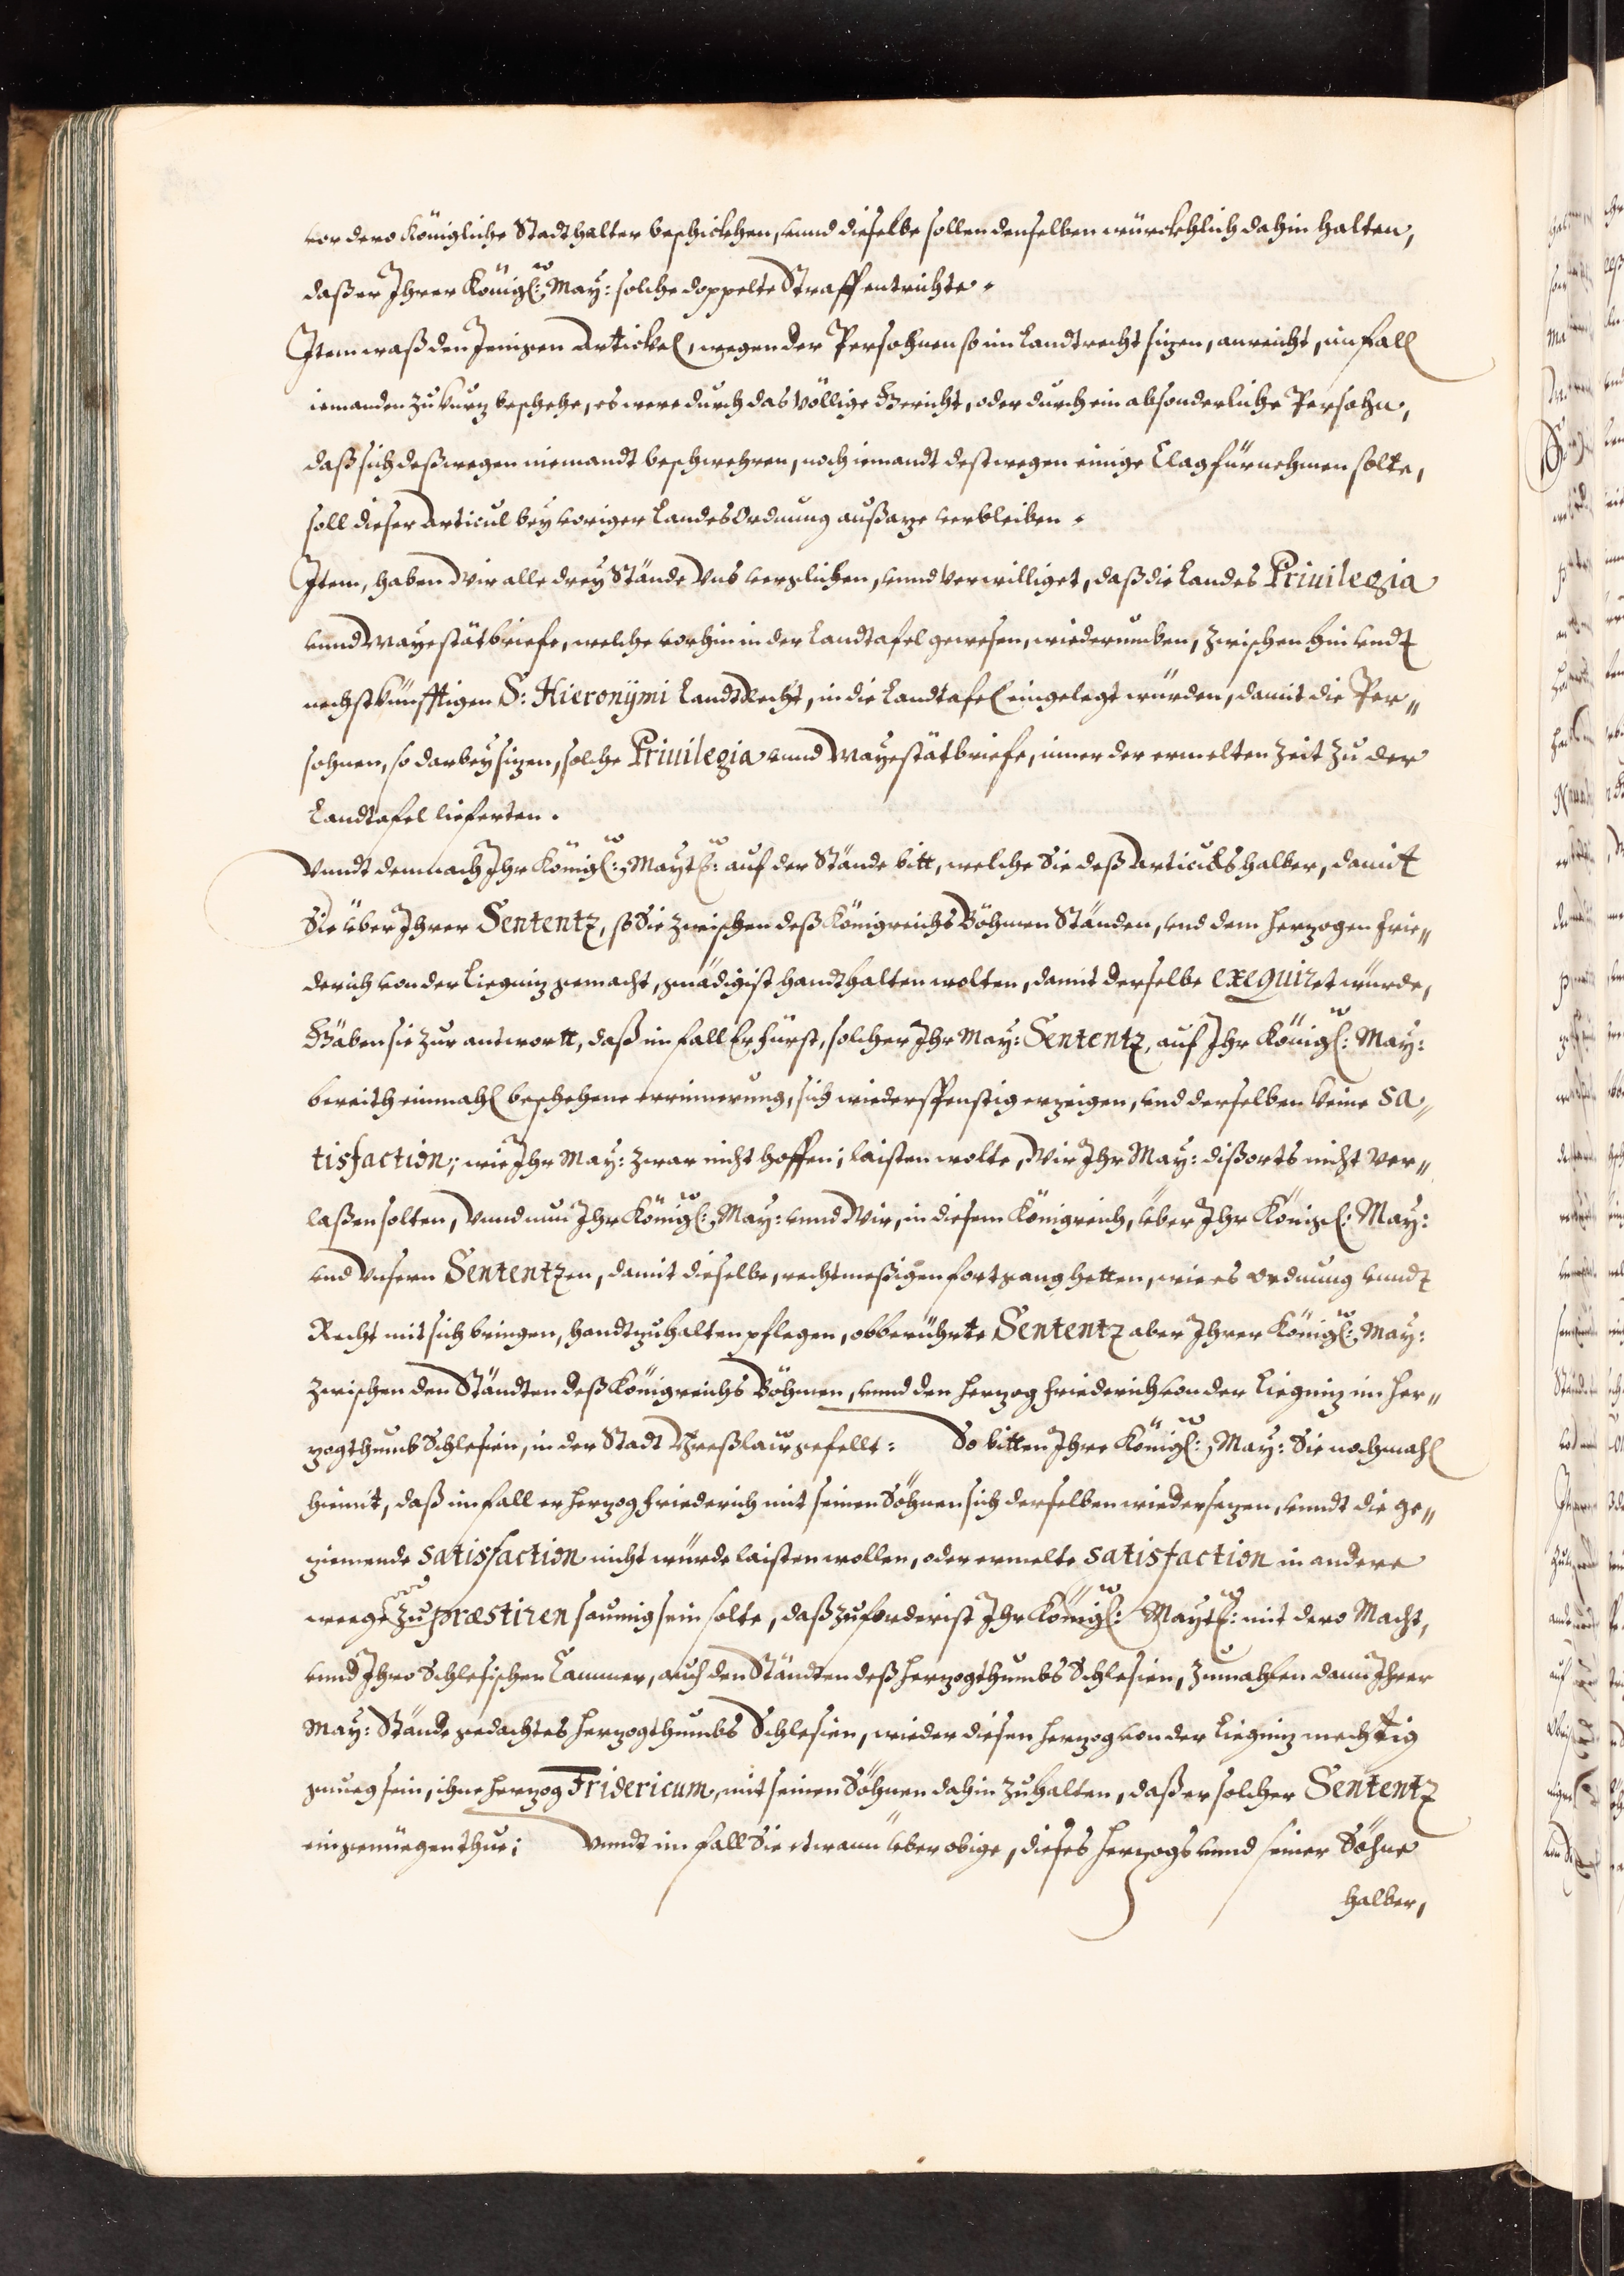 vor dero Königliche Stadthalter beschickhen, vnnd dieselbe sollen denselben würckhlich dahin halten,
daß er Ihrer Königl: May: solche doppelte Straff entrichte.
Item waß den Jenigen Artickel, wegen der Persohnen so im Landtrecht sizen, anreicht, im fall
iemanden zu kurz beschehe, es were durch das völlige Gericht, oder durch ein absonderliche Persohn,
daß sich deßwegen niemandt beschwehren, noch iemandt destwegen einige Clag fürnehmen solte,
soll dieser Articul bey voriger Landes Ordnung außaze verbleiben.
Item, haben Wir alle drey Stände Vns verglichen, vnnd verwilliget, daß die Landes Priuilegia
vnnd Mayestätbriefe, welche vorhin in der Landtafel gewesen, wiederumben, zwischen hin vndt
nechstkünfftigen S: Hieronÿmi Landtrecht, in die Landtafel eingelegt würden, damit die Per„
sohnen, so darbey sizen, solche Priuilegia vnnd Mayestätbriefe, inner der ermelten Zeit zu der
Landtafel lieferten.
Vnndt demnach Ihr Königl: Maytt: auf der Stände bitt, welche Sie deß Articuls halber, damit
Sie über Ihrer Sententz, so Sie zwischen deß Königreichs Böhmen Ständen, vnd dem Herzogen Frie„
derich von der Liegniz gemacht, gnädigist handthalten wolten, damit derselbe exequiret würde,
Gäben sie zur antwortt, daß im fall Er Fürst, solcher Ihr May: Sententz, auf Ihr Königl: May:
bereith einmahl beschehene errinnerung, sich wiederspenstig erzeigen, vnd derselben keine sa„
tisfaction; wie Ihr May: zwar nicht hoffen; laisten wolte, Wir Ihr May: dißorts nicht ver„
laßen solten, Vnnd nun Ihr Königl: May: vnnd Wir, in diesem Königreich, über Ihr Königl: May:
vnd Vnsern Sententzen, damit dieselbe, rechtmeßigen fortgang hetten, wie es Ordnung vnndt
Recht mit sich bringen, handtzuhalten pflegen, obberührte Sententz aber Ihrer Königl: May:
zwischen den Ständten deß Königreichs Böhmen, vnnd den Herzog Friederich von der Liegniz im Her„
zogthumb Schlesien, in der Stadt Preßlaw gefellt: So bitten Ihre Königl: May: Sie nochmahl
hiemit, daß im fall er Herzog Friederich mit seinen Söhnen sich derselben wiedersezen, vnndt die ge„
ziemende satisfaction nicht würde laisten wollen, oder ermelte satisfaction in andere
weege zu præstiren saumig sein solte, daß zuforderist Ihr Königl: Maytt: mit dero Macht,
vnnd Ihro Schlesischen Cammer, auch den Ständten deß Herzogthumbs Schlesien, zumahlen dann Ihrer
May: Stände gedachtes Herzogthumbs Schlesien, wieder diesen Herzog von der Liegniz mechtig
genueg sein, ihne Herzog Fridericum, mit seinen Söhnen dahin zuhalten, daß er solcher Sententz
ein genüegen thue; Vnndt im fall Sie etwann über obige, dieses Herzogs vnnd seiner Söhne
halber,